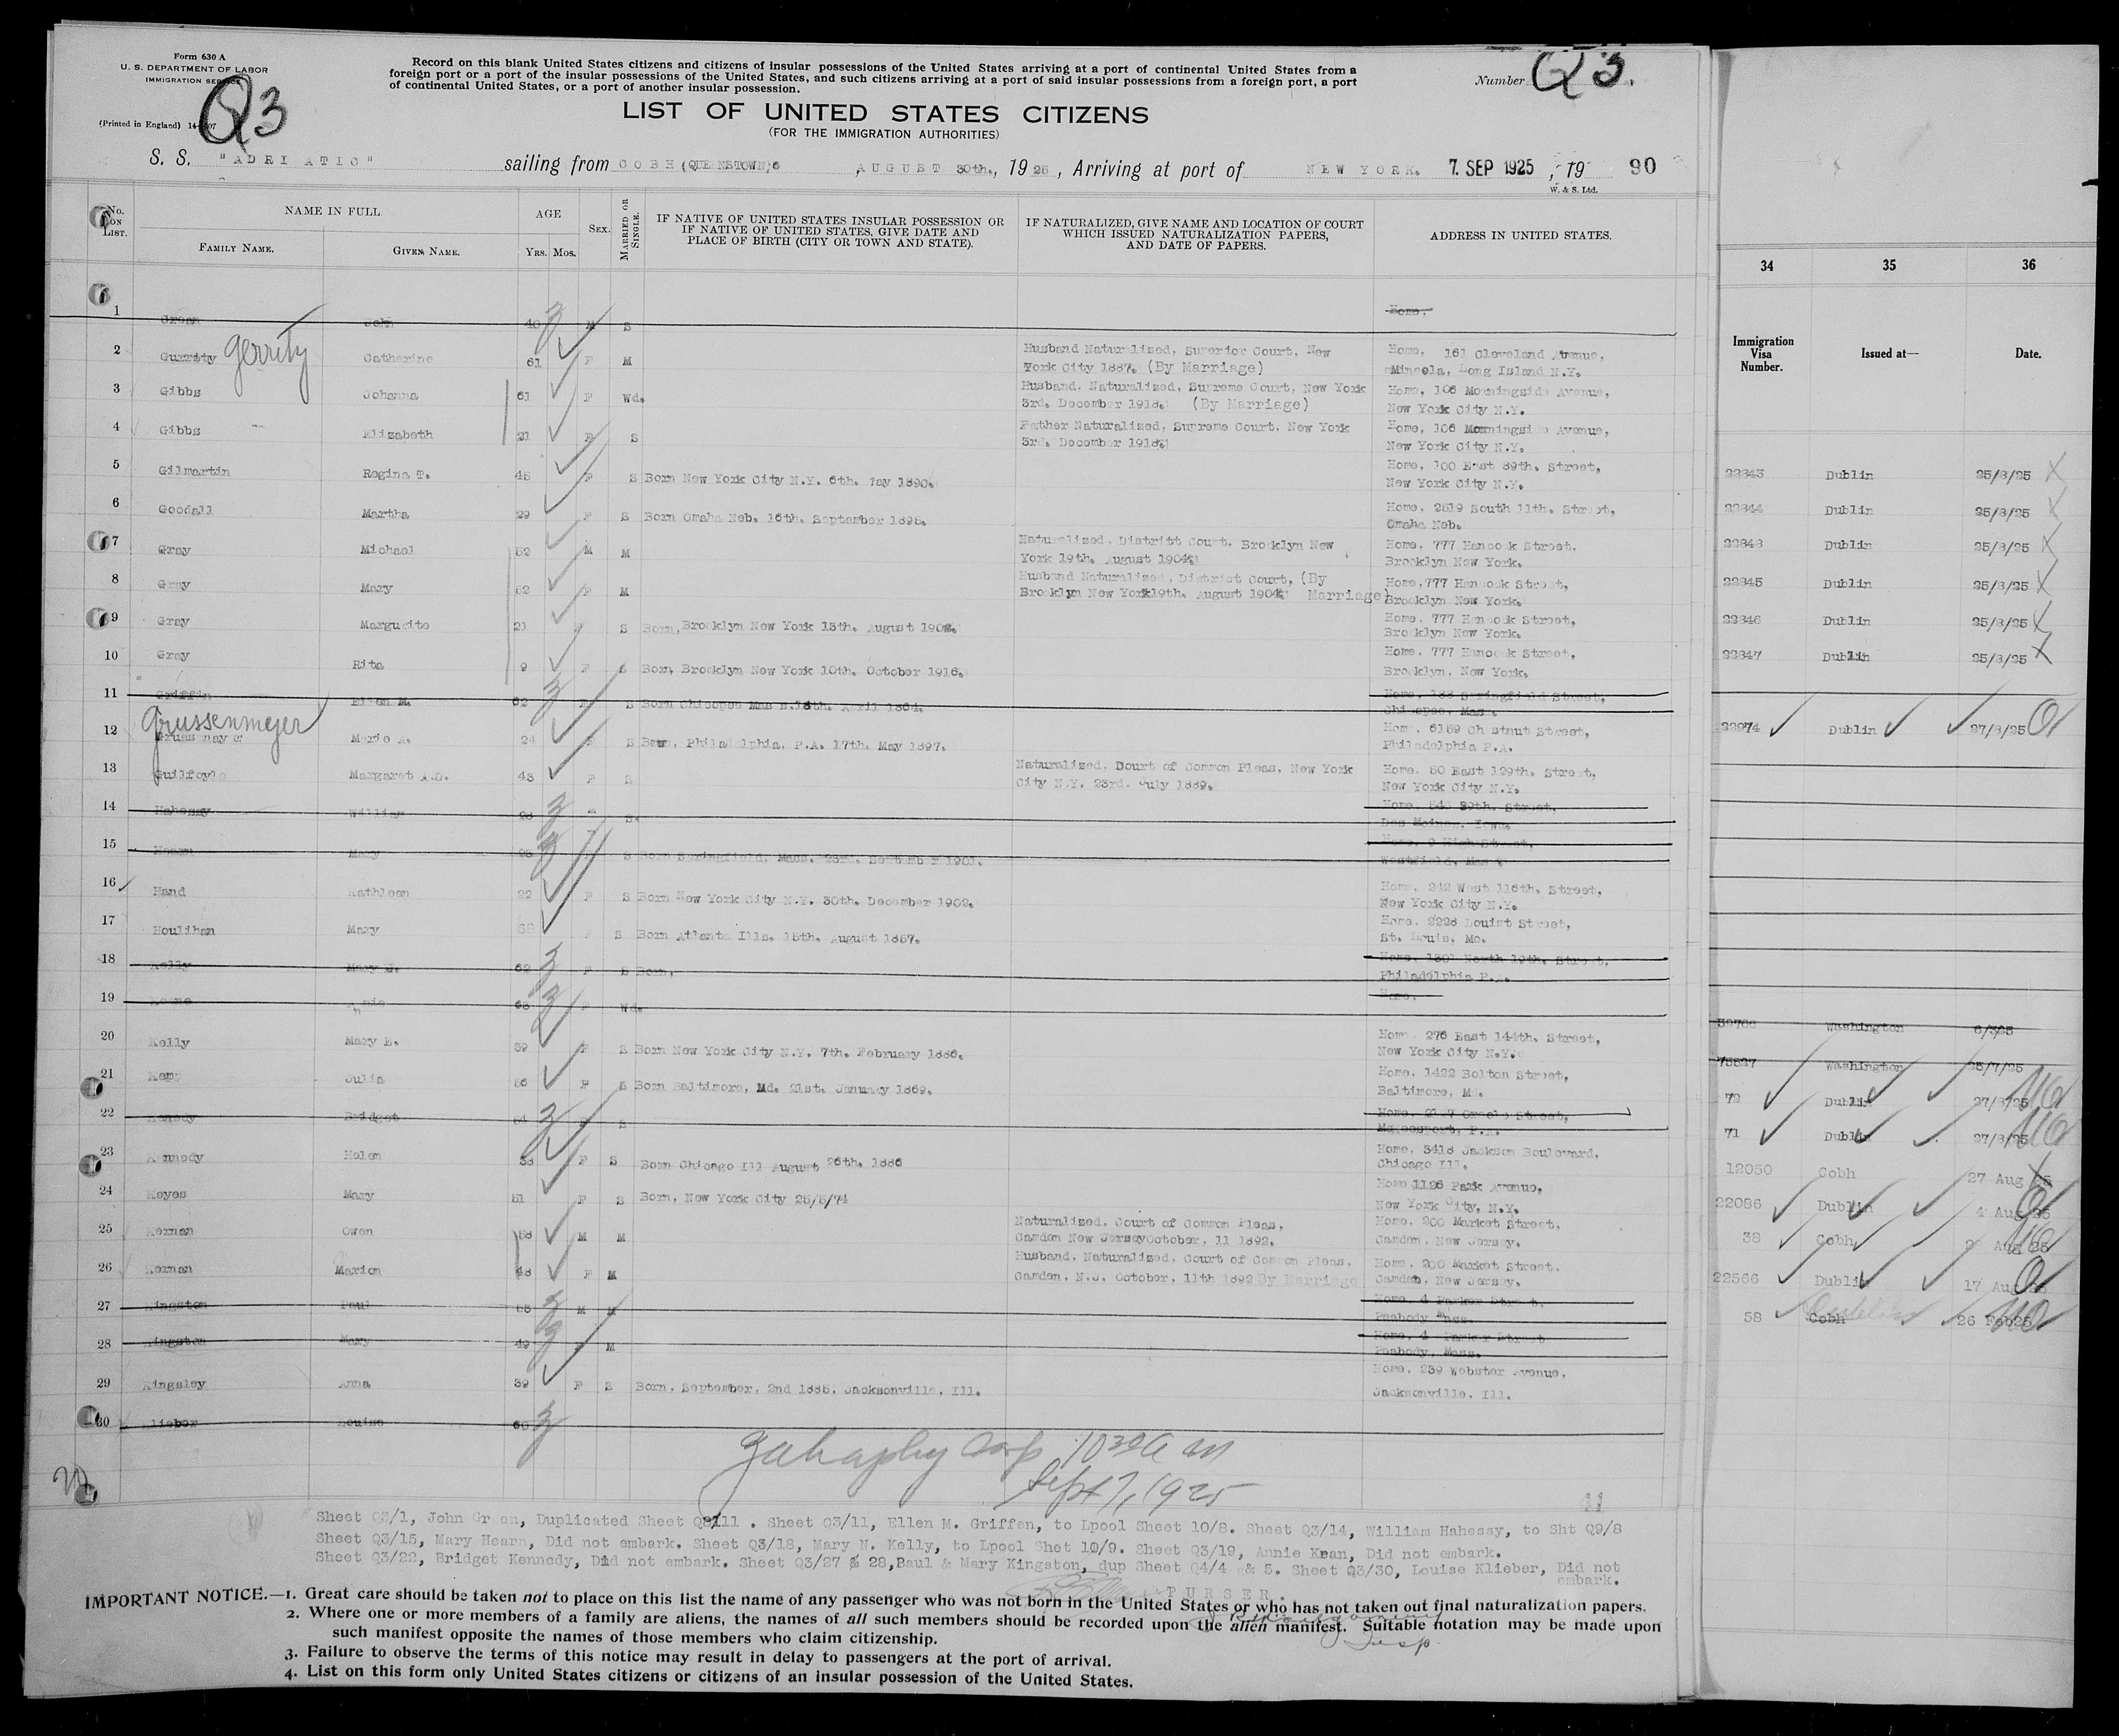 Form 630 A
U. S. DEPARTMENT OF LABOR
IMMIGRATION SERVICE
(Printed in England)
Q3
Record on this blank United States citizens and citizens of insular possessions of the United States arriving at a port of continental United States from a
foreign port or a port of the insular possessions of the United States, and such citizens arriving at a port of said insular possessions from a foreign port, a port
of continental United States, or a port of another insular possession.
Number Q3.
LIST OF UNITED STATES CITIZENS
(FOR THE IMMIGRATION AUTHORITIES)
S. S. "ADRIATIC" sailing from COBH (QUEENSTOWN) AUGUST 30th., 1925, Arriving at port of NEW YORK. 7. SEP 1925, 19 90
W. & S. Ltd.
No. on List. NAME IN FULL. AGE Sex. Married or Single. IF NATIVE OF UNITED STATES INSULAR POSSESSION OR IF NATIVE OF UNITED STATES, GIVE DATE AND PLACE OF BIRTH (CITY OR TOWN AND STATE). IF NATURALIZED, GIVE NAME AND LOCATION OF COURT WHICH ISSUED NATURALIZATION PAPERS, AND DATE OF PAPERS. ADDRESS IN UNITED STATES.
Family Name. Given Name. Yrs. Mos.
34 35 36
Immigration Visa Number. Issued at— Date.
1 Green John 40 M S Home.
2 Gurrity Gerrity Catherine 61 F M Husband Naturalized, Superior Court, New Home, 161 Cleveland Avenue,
York City 1887. (By Marriage) Mineola, Long Island N.Y.
3 Gibbs Johanna 61 F Wd. Husband, Naturalized, Supreme Court, New York Home, 106 Morningside Avenue,
3rd. December 1918. (By Marriage) New York City N.Y.
4 Gibbs Elizabeth 21 F S Father Naturalized, Supreme Court, New York Home, 106 Morningside Avenue,
3rd. December 1918. New York City N.Y.
5 Gilmartin Regina T. 45 F S Born New York City N.Y. 6th. May 1890. Home, 100 East 89th. Street,
New York City N.Y.
22843 Dublin 25/8/25
6 Goodall Martha 29 F S Born Omaha Neb. 16th. September 1895. Home, 2519 South 11th. Street,
Omaha Neb.
22844 Dublin 25/8/25
7 Gray Michael 52 M M Naturalized, District Court, Brooklyn New Home, 777 Hancock Street,
York 19th. August 1904. Brooklyn New York.
22848 Dublin 25/8/25
8 Gray Mary 52 F M Husband Naturalized, District Court, (By Home, 777 Hancock Street,
Brooklyn New York 19th. August 1904. Marriage) Brooklyn New York.
22845 Dublin 25/8/25
9 Gray Marguerite 21 F S Born, Brooklyn New York 13th. August 1902. Home. 777 Hancock Street,
Brooklyn New York.
22846 Dublin 25/8/25
10 Gray Rita 9 F S Born, Brooklyn New York 10th. October 1916. Home. 777 Hancock Street,
Brooklyn. New York.
22847 Dublin 25/8/25
11 Griffin Ellen M. 62 F S Born Chicopee Mass. 18th. April 1864. Home, Springfield Street,
Chicopee. Mass.
Grussenmeyer
12 Marie A. 24 F S Born, Philadelphia, P.A. 17th. May 1897. Home, 6159 Chestnut Street,
Philadelphia P.A.
22974 Dublin 27/8/25
13 Guilfoyle Margaret A.D. 43 F S Naturalized, Court of Common Pleas, New York Home. 50 East 129th. Street,
City N.Y. 23rd. July 1889. New York City N.Y.
14 Hahessy William S Home. 29th. Street,
Des Moines. Iowa.
15 Hearn Mary S Born Springfield, Mass. 23rd. September 1901. Home. 9 High Street,
Westfield, Mass.
16 Hand Kathleen 22 F S Born New York City N.Y. 30th. December 1902. Home. 242 West 116th. Street,
New York City N.Y.
17 Houlihan Mary 68 F S Born Atlanta Ills. 15th. August 1857. Home. 2228 Louist Street,
St. Louis, Mo.
18 Kelly Mary 62 F S Born, Home. 1301 North 19th. Street,
Philadelphia P.A.
19 Annie 65 F Wd. Home.
Washington
20 Kelly Mary E. 39 F S Born New York City N.Y. 7th. February 1886. Home. 276 East 144th. Street,
New York City N.Y.
Washington 25/7/25
21 Kemp Julia 56 F S Born Baltimore, Md. 21st. January 1869. Home. 1422 Bolton Street,
Baltimore, Md.
72 Dublin 27/8/25
22 Kennedy Bridget 54 F S Home. Street,
McKeesport, P.A.
71 Dublin 27/8/25
23 Kennedy Helen 38 F S Born Chicago Ill August 26th. 1886 Home. 3418 Jackson Boulevard,
Chicago Ill.
12050 Cobh 27 Aug 25
24 Keyes Mary 51 F S Born, New York City 25/5/74 Home 1126 Park Avenue,
New York City, N.Y.
22086 Dublin 4 Aug 25
25 Kernan Owen 58 M M Naturalized. Court of Common Pleas, Home. 200 Market Street,
Camden New Jersey October, 11 1892. Camden, New Jersey.
38 Cobh Aug 25
26 Kernan Marion 48 F M Husband, Naturalized, Court of Common Pleas, Home. 200 Market Street.
Camden, N.J. October, 11th 1892 By Marriage Camden, New Jersey.
22566 Dublin 17 Aug
27 Kingston Paul 65 M M Home. 4 Parker Street,
Peabody Mass.
58 Cobh Dublin 26 Feb 25
28 Kingston Mary 49 F M Home. 4 Parker Street
Peabody, Mass.
29 Kingsley Anna 39 F S Born, September, 2nd 1885, Jacksonville, Ill. Home. 239 Webster Avenue,
Jacksonville. Ill.
30 Klieber Louise 60
Corp 10 30 A M
Sept 7, 1925
Sheet Q3/1, John Green, Duplicated Sheet . Sheet Q3/11, Ellen M. Griffen, to Lpool Sheet 10/8. Sheet Q3/14, William Hahessy, to Sht Q9/8
Sheet Q3/15, Mary Hearn, Did not embark. Sheet Q3/18, Mary N. Kelly, to Lpool Shet 10/9. Sheet Q3/19, Annie Kean, Did not embark.
Sheet Q3/22, Bridget Kennedy, Did not embark. Sheet Q3/27 & 28, Baul & Mary Kingston, dup Sheet Q4/4 & 5. Sheet Q3/30, Louise Klieber, Did not
embark.
PURSER.
IMPORTANT NOTICE.—1. Great care should be taken not to place on this list the name of any passenger who was not born in the United States or who has not taken out final naturalization papers.
2. Where one or more members of a family are aliens, the names of all such members should be recorded upon the alien manifest. Suitable notation may be made upon
such manifest opposite the names of those members who claim citizenship.
Insp.
3. Failure to observe the terms of this notice may result in delay to passengers at the port of arrival.
4. List on this form only United States citizens or citizens of an insular possession of the United States.